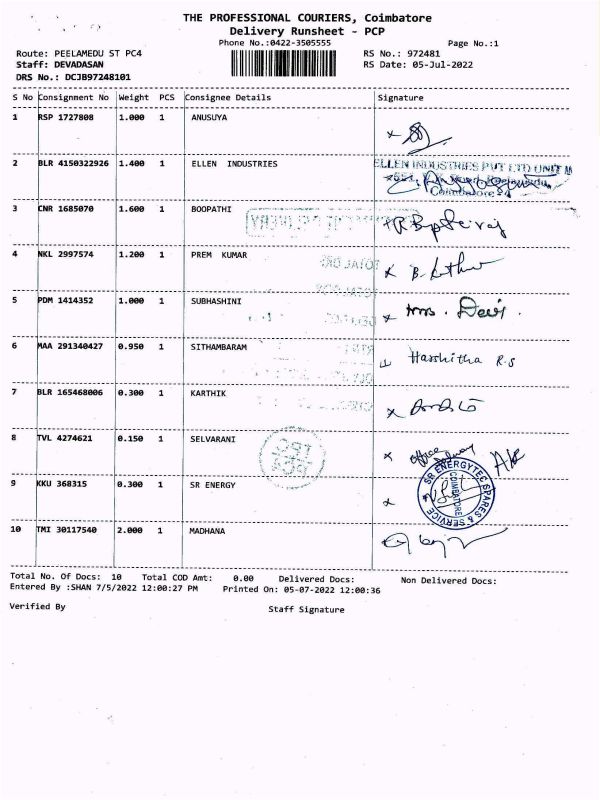 THE PROFESSIONAL COURIERS, Coimbatore
Delivery Runsheet - PCP
Phone No.:0422-3505555 Page No.:1
Route: PEELAMEDU ST PC4 RS No.: 972481
Staff: DEVADASAN RS Date: 05-Jul-2022
DRS No.: DCJB97248101
S No Consignment No Weight PCS Consignee Details Signature
1 RSP 1727808 1.000 1 ANUSUYA
2 BLR 4150322926 1.400 1 ELLEN INDUSTRIES ELLEN INDUSTRIES PVT LTD UNIT
Coimbatore
3 CNR 1685070 1.600 1 BOOPATHI
4 NKL 2997574 1.200 1 PREM KUMAR
5 PDM 1414352 1.000 1 SUBHASHINI Mrs. Devi.
6 MAA 291340427 0.950 1 SITHAMBARAM Harshitha R.S
7 BLR 165468006 0.300 1 KARTHIK
8 TVL 4274621 0.150 1 SELVARANI office
9 KKU 368315 0.300 1 SR ENERGY SB ENERGYTEC SPARES & SERVICE COIMBATORE
10 TMI 30117540 2.000 1 MADHANA
Total No. Of Docs: 10 Total COD Amt: 0.00 Delivered Docs: Non Delivered Docs:
Entered By :SHAN 7/5/2022 12:00:27 PM Printed On: 05-07-2022 12:00:36
Verified By Staff Signature